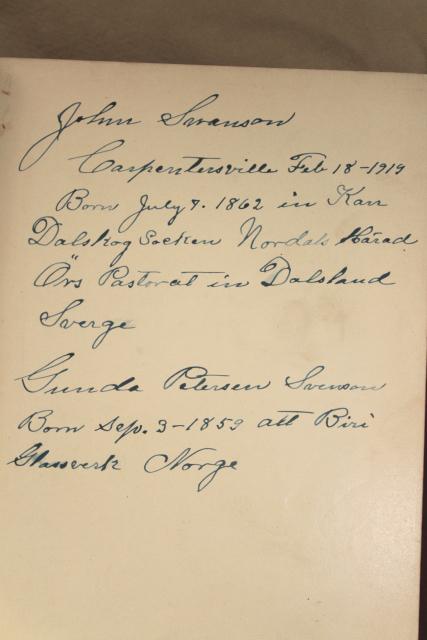 John Swanson
Carpentersville Feb 18-1919
Born July 7. 1862 in Karr
Dalskog Socken Nordals Härad
Örs Pastorat in Dalsland
Sverge
Gunda Petersen Svenson
Born Sep. 3-1859 att Biri
Glassverk Norge